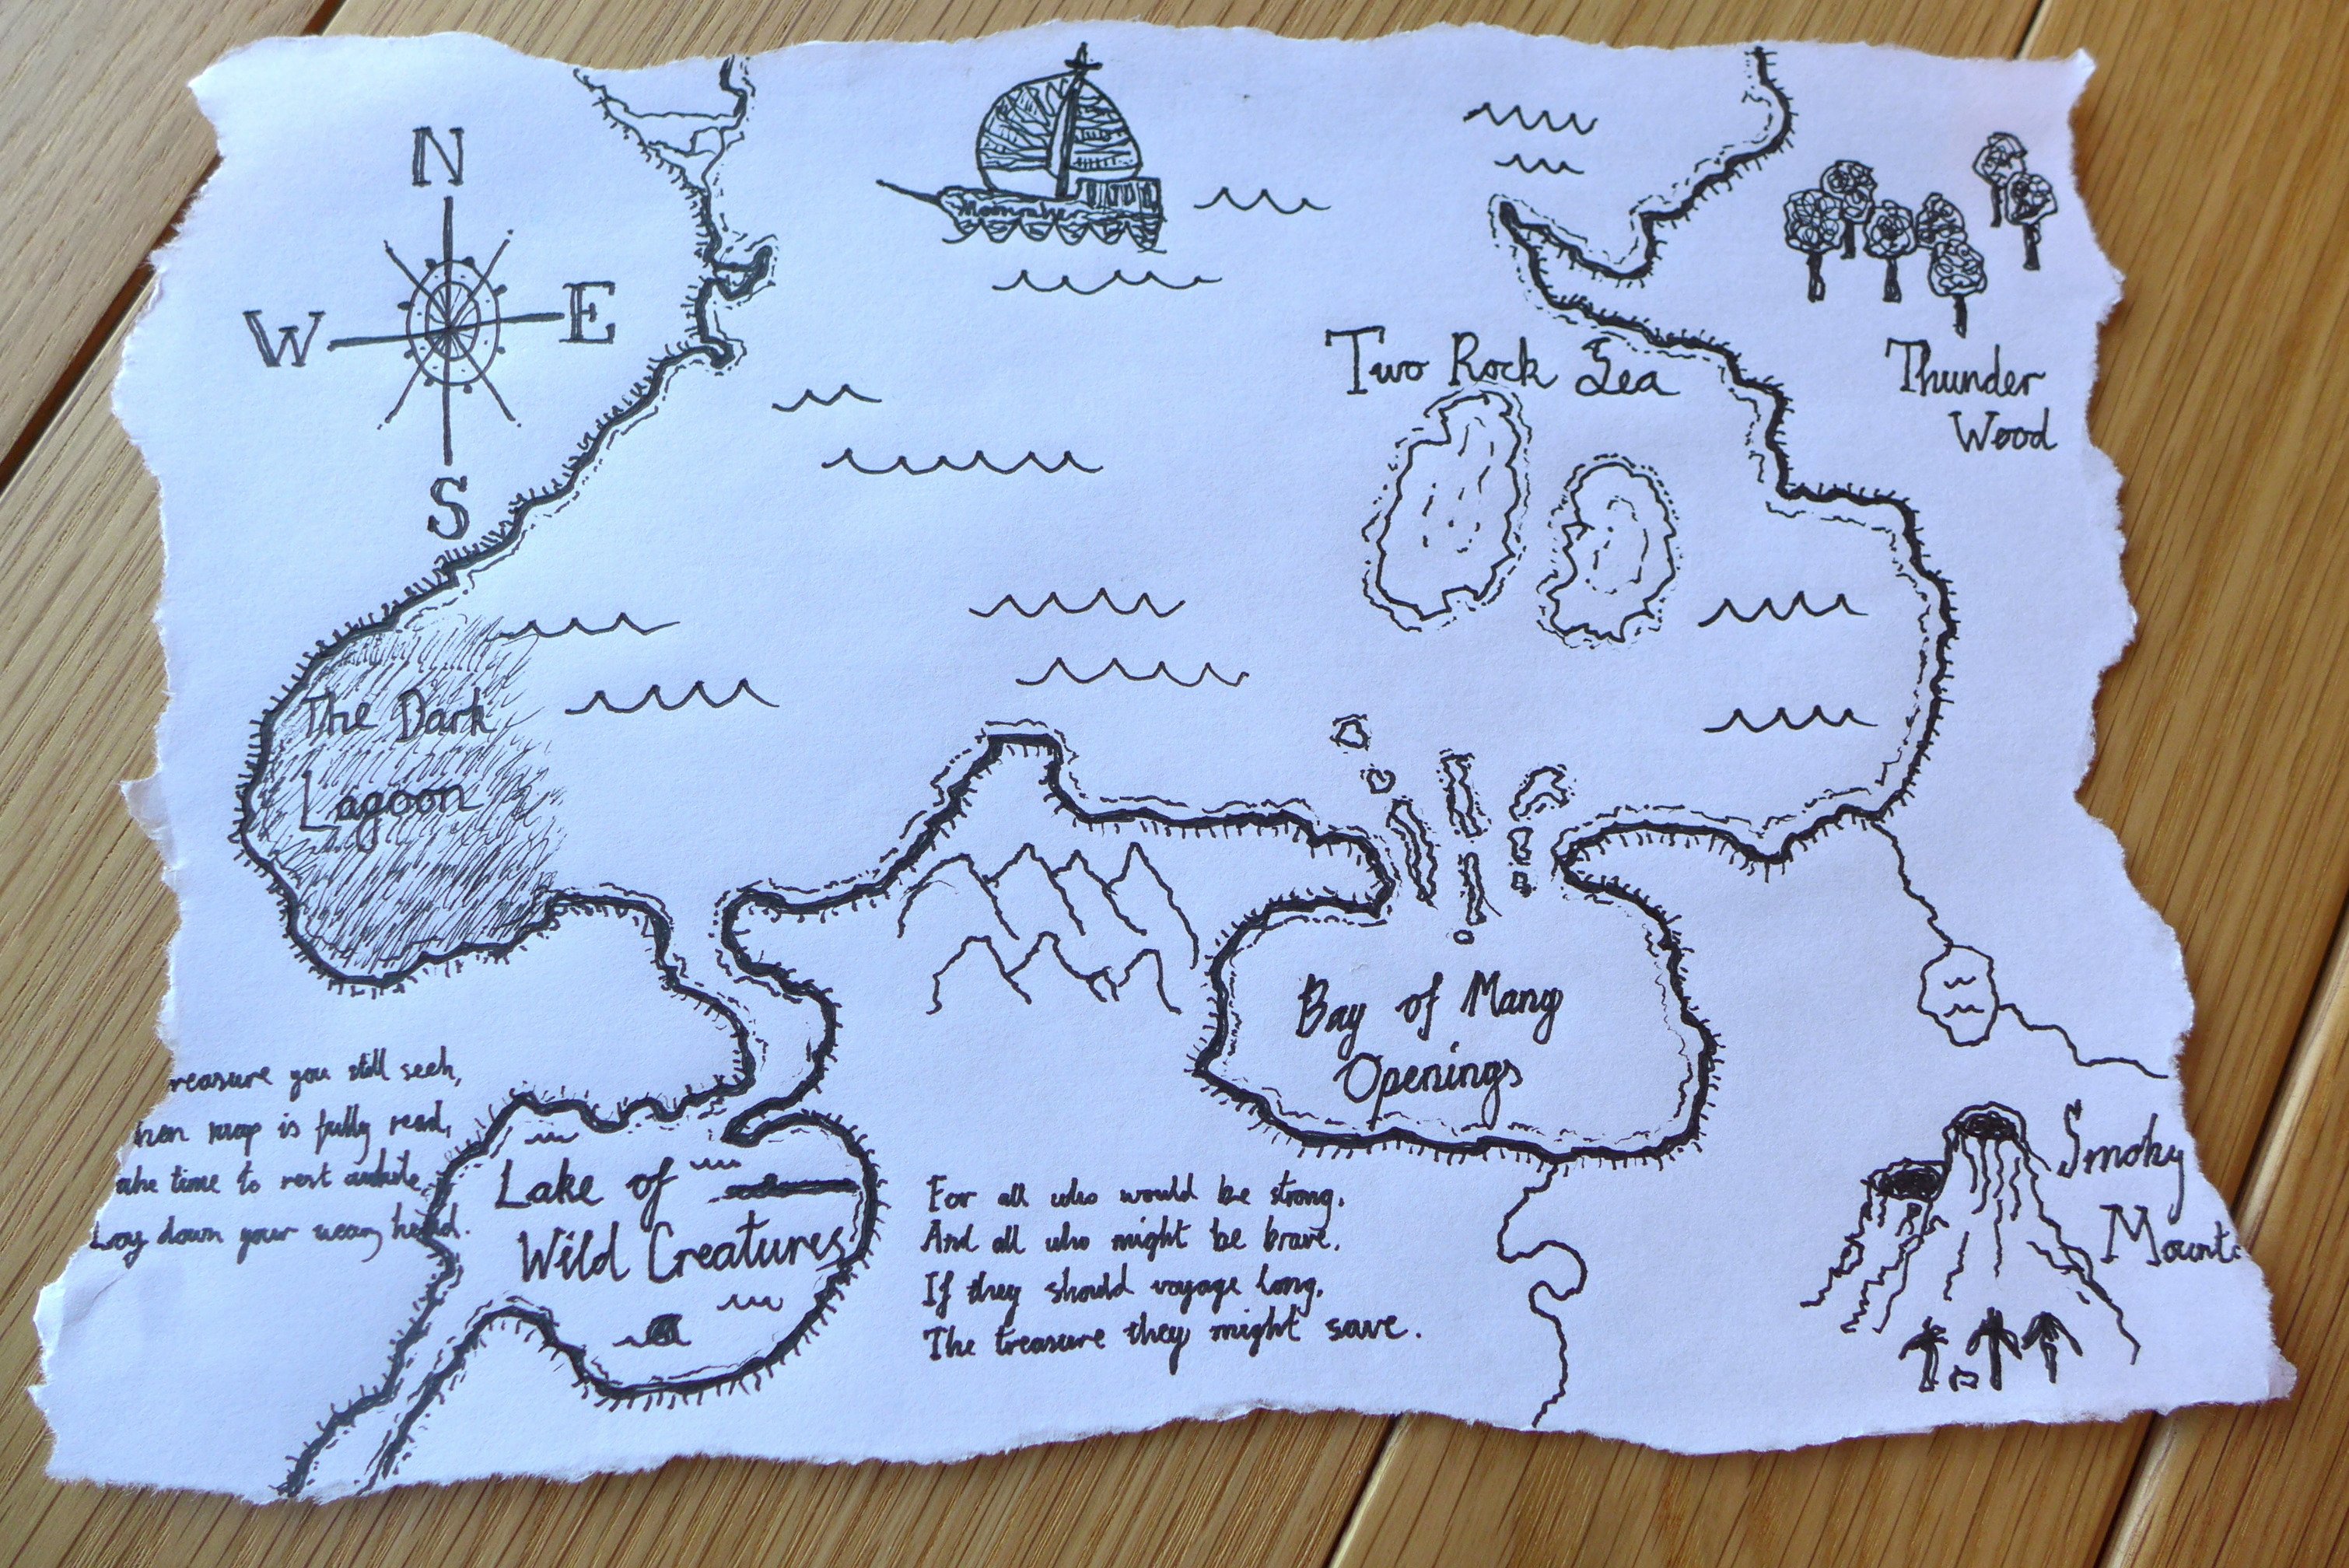 N
W E
S
Two Rock Sea
Thunder
Wood
The Dark
Lagoon
Bay of Many
Openings
reasure you still seek,
hen map is fully read,
ake time to rest awhile
Lay down your weary head.
Lake of
Wild Creatures
For all who would be strong,
And all who might be brave,
If they should voyage long,
The treasure they might save.
Smoky
Mount